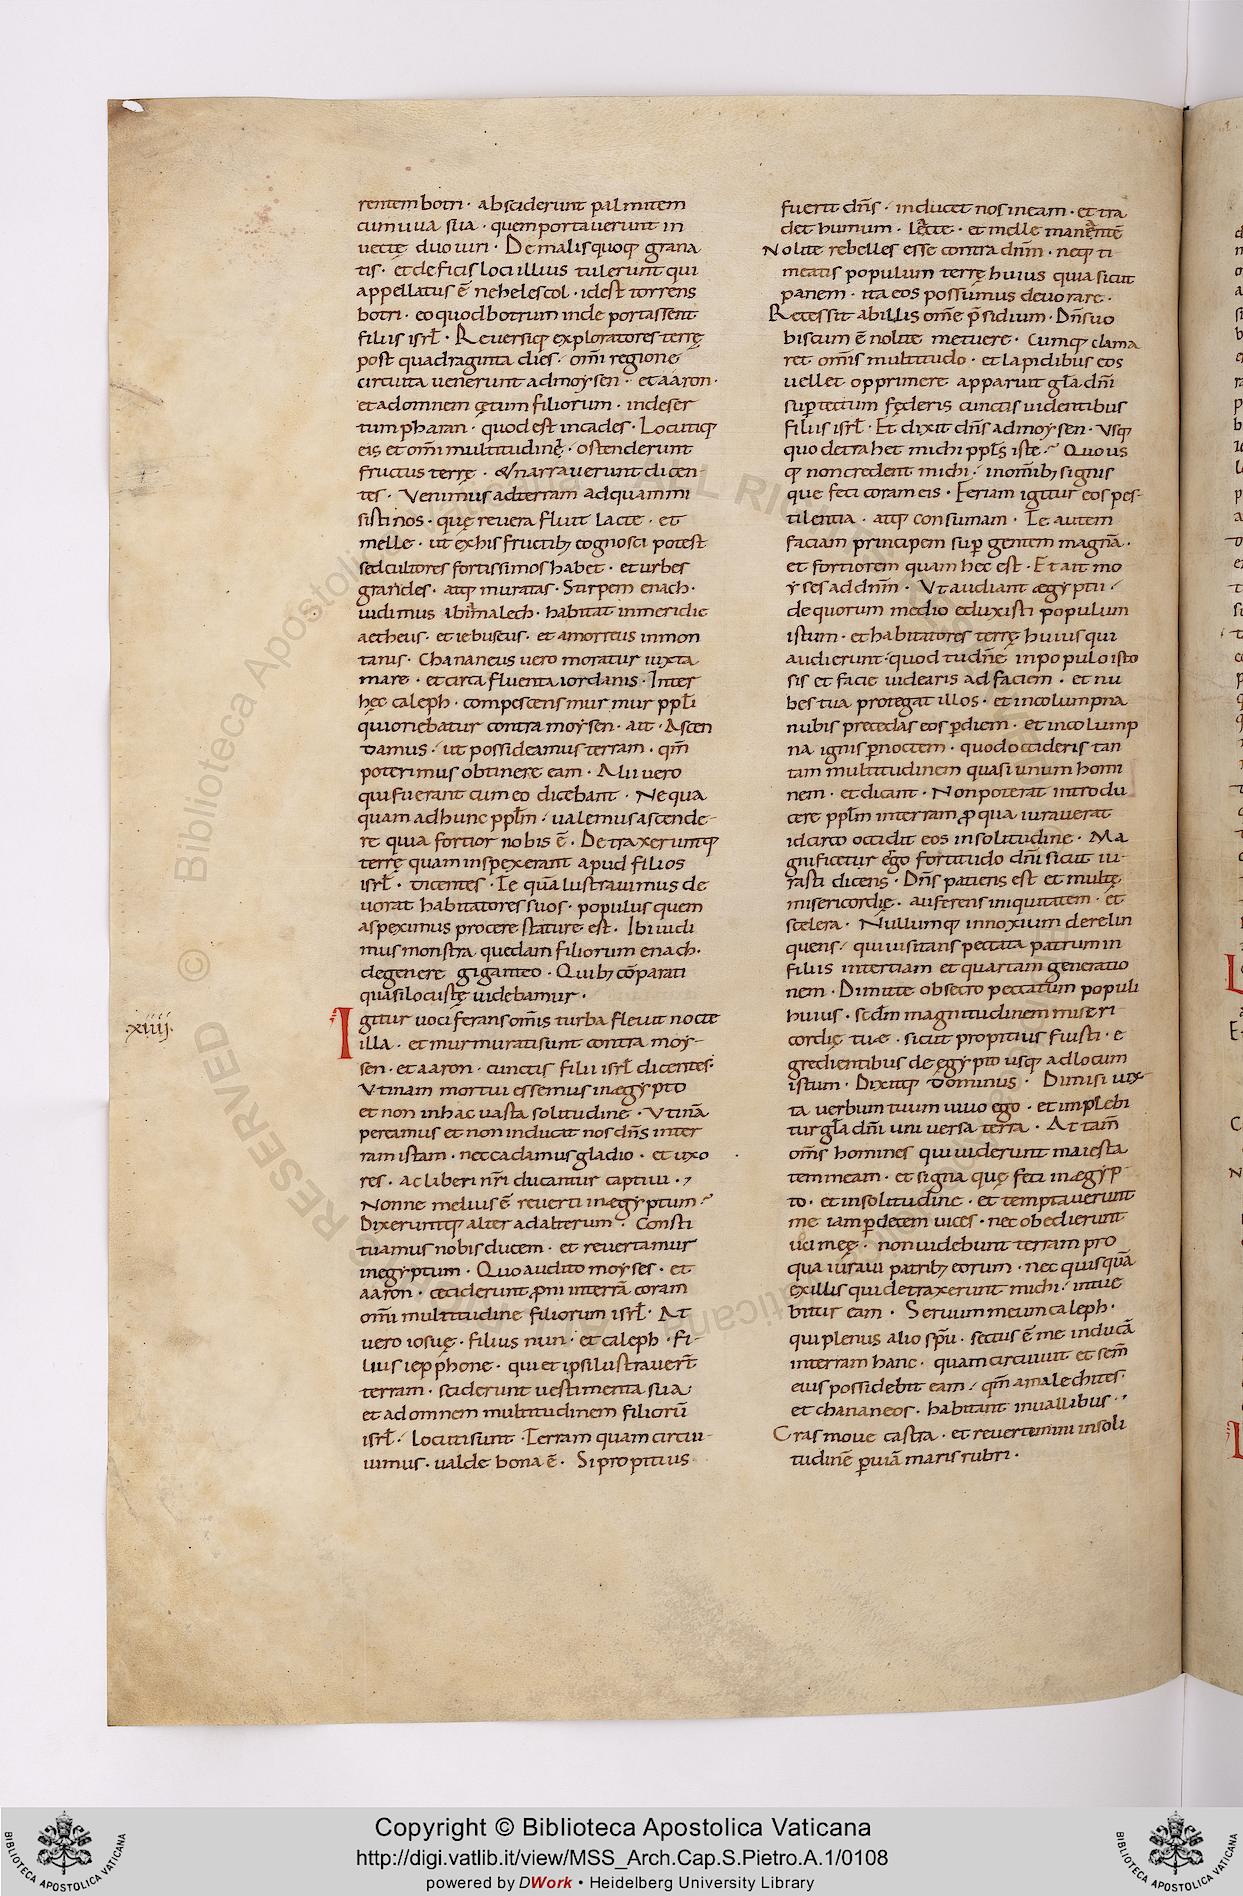 rentem botri · absciderunt palmitem
cum uua sua · quem portauerunt in
uecte duo uiri · De malis quoq; grana
tis · et de ficis loci illius tulerunt qui
appellatus ē nehelescol · idest torrens
botri · eo quod botrum inde portassent
filii isrl̄ · Reuersiq; exploratores terrę
post quadraginta dies · om̄i regione
circuita uenerunt ad moysen · et aaron ·
et ad omnem cętum filiorum · in deser
tum pharan · quod est in cades · Locutiq;
eis et om̄i multitudinę · ostenderunt
fructus terrę · & narrauerunt dicen-
tes · Venimus ad terram ad quam mi
sisti nos · quę reuera fluit lacte · et
melle · ut ex his fructib; cognosci potest
sed cultores fortissimos habet · et urbes
grandes · atq; muratas · Stirpem enach ·
uidimus abimalech · habitat in meridie
aetheus · et iebuseus · et amorreus in mon
tanis · Chananeus uero moratur iuxta
mare · et circa fluenta iordanis · Inter
hęc caleph · compescens mur mur ppl̄i
qui oriebatur contra moysen · ait · Ascen
damus · ut possideamus terram · qm̄
poterimus obtinere eam · Alii uero
qui fuerant cum eo dicebant · Nequa
quam ad hunc ppl̄m · ualemus ascende-
re quia fortior nobis ē · Detraxeruntq;
terrę quam inspexerant apud filios
isrl̄ · dicentes · Te quā lustrauimus de
uorat habitatores suos · populus quem
aspeximus procere stature est · Ibi uidi
mus monstra quedam filiorum enach ·
de genere giganteo · Quib; cōparati
quasi locustę uidebamur ·
·xiiij·
Igitur uociferans om̄is turba fleuit nocte
illa · et murmurati sunt contra moy-
sen · et aaron · cuncti filii isrl̄ dicentes ·
Vtinam mortui essemus in ægypto
et non in hac uasta solitudine · Vtinā
pereamus et non inducat nos dn̄s in ter
ram istam · nec cadamus gladio · et uxo
res · ac liberi nr̄i ducantur captiui ·
Nonne melius ē reuerti in ægyptum ·
Dixeruntq; alter ad alterum · Consti
tuamus nobis ducem · et reuertamur
in egyptum · Quo audito moyses · et
aaron · ceciderunt proni in terrā coram
om̄i multitudine filiorum isrl̄ · At
uero iosue · filius nun · et caleph · fi-
lius iepphone · qui et ipsi lustrauer̄t
terram · sciderunt uestimenta sua
et ad omnem multitudinem filiorū
isrl̄ · locuti sunt · Terram quam circui-
uimus · ualde bona ē · Si propitius
fuerit dn̄s · inducet nos in eam · et tra
det humum · lacte · et melle manentē
Nolite rebelles esse contra dn̄m · neq; ti-
meatis populum terrę huius quia sicut
panem · ita eos possumus deuorare ·
Recessit ab illis om̄e p̄sidium · Dn̄s uo
biscum ē nolite metuere · Cumq; clama
ret om̄is multitudo · et lapidibus eos
uellet opprimere apparuit gl̄a dn̄i
sup tectum fęderis cunctis uidentibus
filiis isrl̄ · Et dixit dn̄s ad moysen · Vsq;
quo detrahet michi ppl̄s iste · Quo us
q; non credent michi · in om̄ib; signis
que feci coram eis · Feriam igitur eos pes-
tilentia · atq; consumam · Te autem
faciam principem sup gentem magnā ·
et fortiorem quam hec est · Et ait mo
yses ad dn̄m · Vt audiant ægyptii ·
de quorum medio eduxisti populum
istum · et habitatores terrę huius qui
audierunt · quod tu dn̄e in populo isto
sis et facie uidearis ad faciem · et nu
bes tua protegat illos · et in columpna
nubis precedas eos p diem · et in colump
na ignis p noctem · quod occideris tan
tam multitudinem quasi unum homi
nem · et dicant · Non poterat introdu
cere ppl̄m in terram pro qua iurauerat
idcirco occidit eos in solitudine · Ma
gnificetur ergo fortitudo dn̄i sicut iu-
rasti dicens · Dn̄s patiens est et multę
misericordię · auferens iniquitatem · et
scelera · Nullumq; innoxium derelin
quens · qui uisitans peccata patrum in
filiis in tertiam et quartam generatio
nem · Dimitte obsecro peccatum populi
huius · scdm̄ magnitudinem miseri
cordię tuę · sicut propitius fuisti · e
gredientibus de ęgypto usq; ad locum
istum · Dixitq; Dominus · Dimisi iux
ta uerbum tuum uiuo ego · et implebi
tur gl̄a dn̄i uniuersa terra · At tam̄
om̄s homines qui uiderunt maiesta
tem meam · et signa quę feci in ægyp
to · et in solitudine · et temptauerunt
me iam p decem uices · nec obedierunt
uoci meę · non uidebunt terram pro
qua iuraui patrib; eorum · nec quisquā
ex illis qui detraxerunt michi · intue
bitur eam · Seruum meum caleph ·
qui plenus alio sp̄u · secutus ē me inducā
in terram hanc · quam circuiuit et sem̄
eius possidebit eam · qm̄ amalechites
et chananeos · habitant in uallibus ·
Cras moue castra · et reuertemini in soli
tudinē p uiā maris rubri ·
Copyright © Biblioteca Apostolica Vaticana
http://digi.vatlib.it/view/MSS_Arch.Cap.S.Pietro.A.1/0108
powered by DWork • Heidelberg University Library